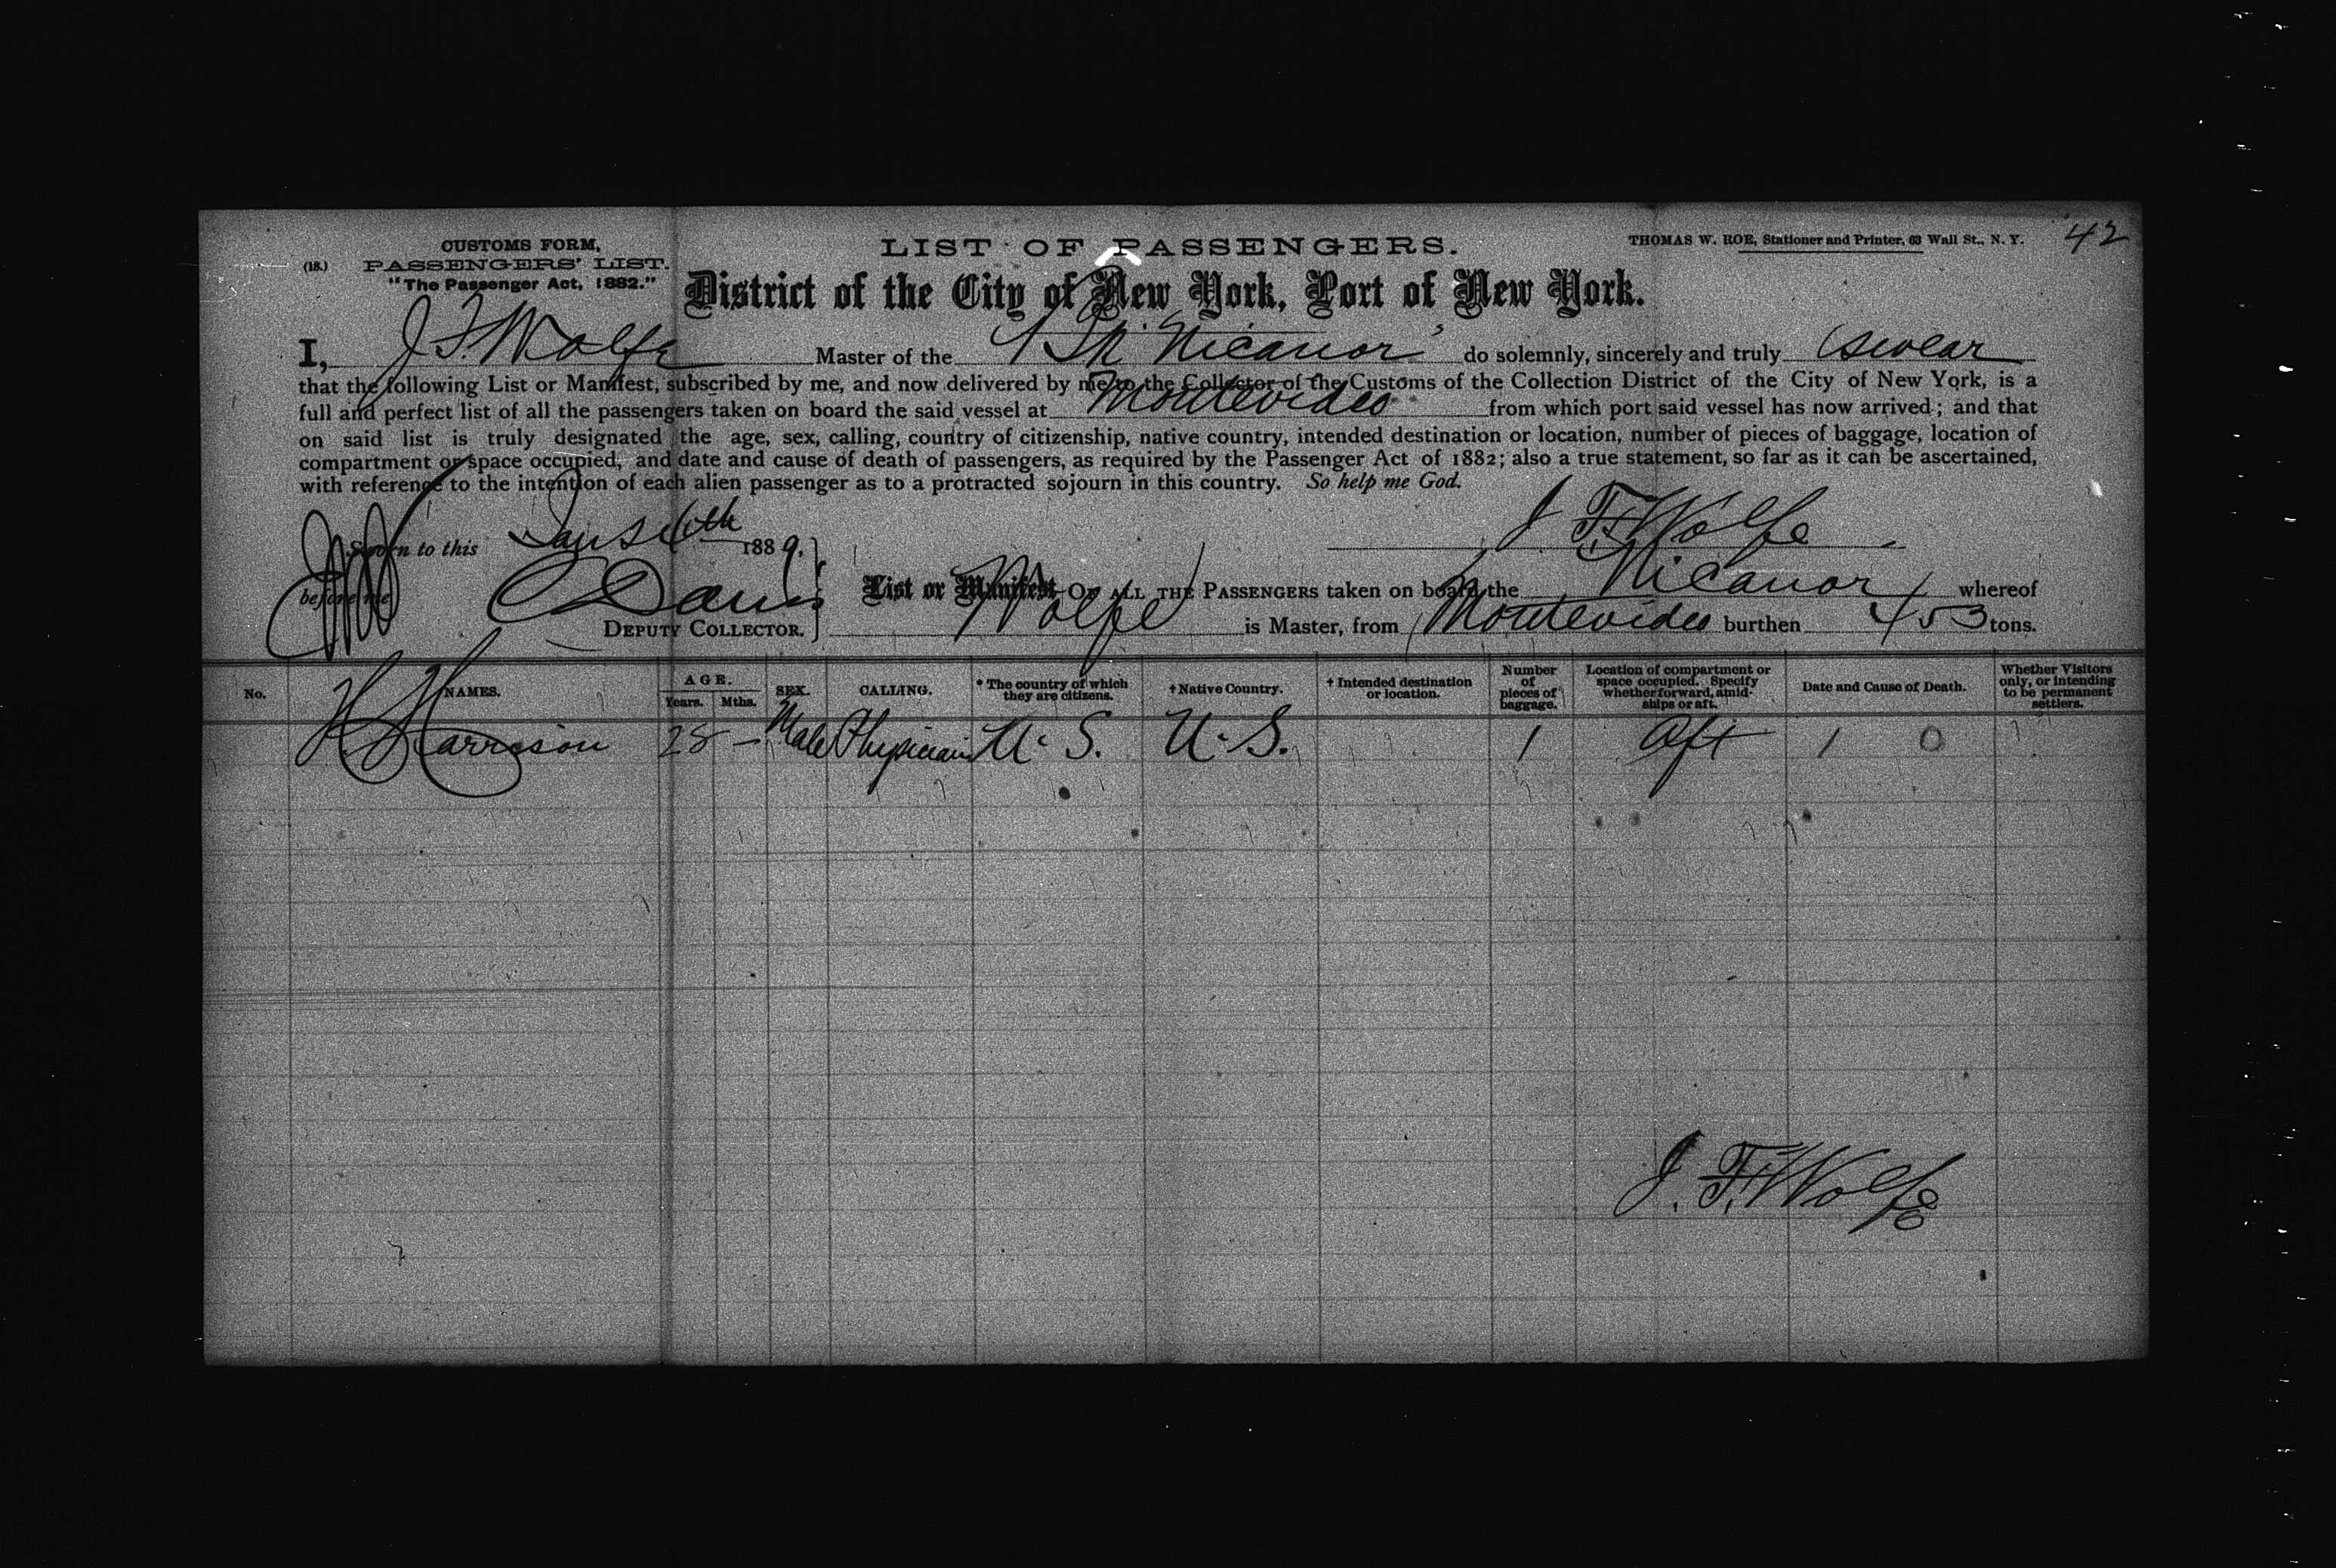 42
CUSTOMS FORM,
(18.) PASSENGERS' LIST.
"The Passenger Act, 1882."
LIST OF PASSENGERS.
THOMAS W. ROE, Stationer and Printer, 63 Wall St., N. Y.
District of the City of New York, Port of New York.
I, J F. Wolfe Master of the Nicanor do solemnly, sincerely and truly swear
that the following List or Manifest, subscribed by me, and now delivered by me to the Collector of the Customs of the Collection District of the City of New York, is a
full and perfect list of all the passengers taken on board the said vessel at Montevideo from which port said vessel has now arrived; and that
on said list is truly designated the age, sex, calling, country of citizenship, native country, intended destination or location, number of pieces of baggage, location of
compartment or space occupied, and date and cause of death of passengers, as required by the Passenger Act of 1882; also a true statement, so far as it can be ascertained,
with reference to the intention of each alien passenger as to a protracted sojourn in this country. So help me God.
J. F. Wolfe
Sworn to this 1889.
before me
DEPUTY COLLECTOR.
List or Manifest OF ALL THE PASSENGERS taken on board the Nicanor whereof
Wolfe is Master, from Montevideo burthen 453 tons.
No. NAMES. AGE. Years. Mths. SEX. CALLING. * The country of which they are citizens. † Native Country. † Intended destination or location. Number of pieces of baggage. Location of compartment or space occupied. Specify whether forward, amidships or aft. Date and Cause of Death. Whether Visitors only, or intending to be permanent settlers.
H Harrison 28 — Male Physician U. S. U. S. 1 Aft 1 0
J. F. Wolfe